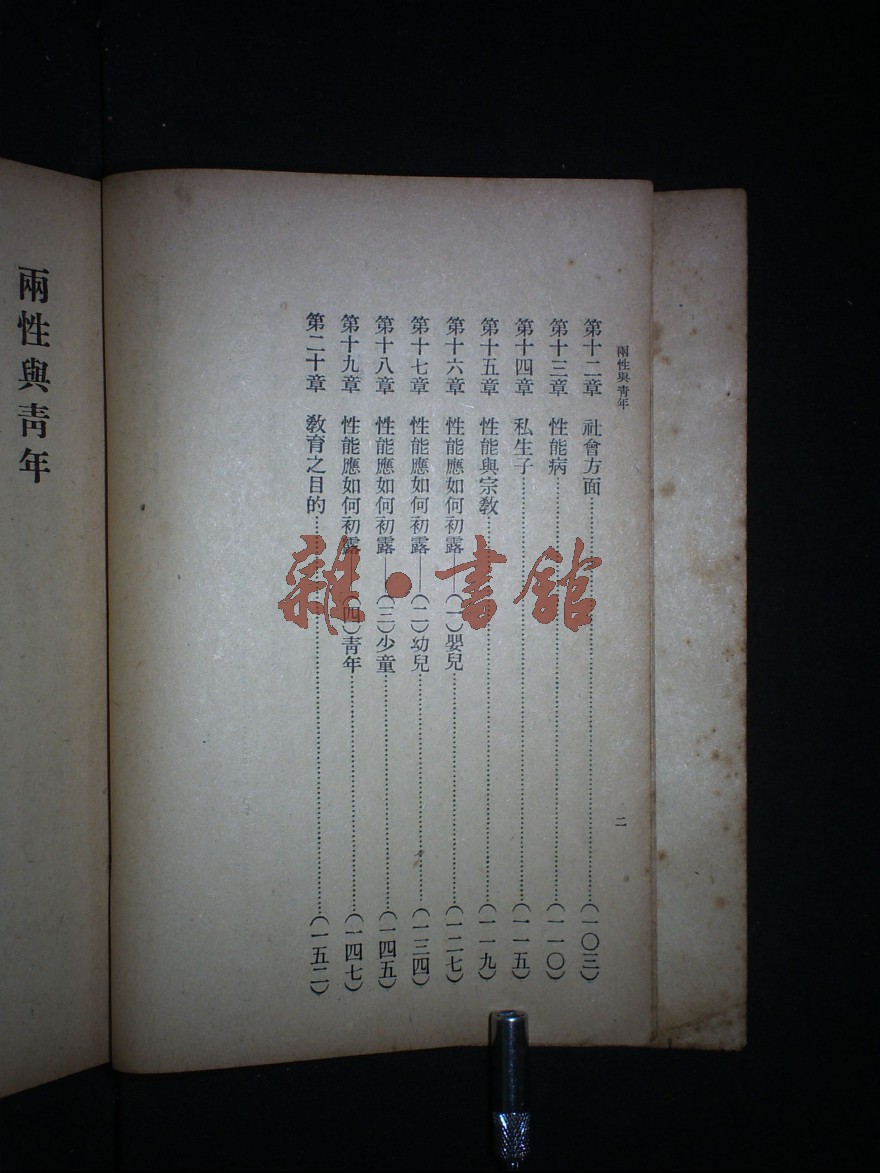 兩性與青年
二
第十二章　社會方面……(一〇三)
第十三章　性能病……(一一〇)
第十四章　私生子……(一一五)
第十五章　性能與宗教……(一一九)
第十六章　性能應如何初露——(一)嬰兒……(一二七)
第十七章　性能應如何初露——(二)幼兒……(一三四)
第十八章　性能應如何初露——(三)少童……(一四五)
第十九章　性能應如何初露——(四)青年……(一四七)
第二十章　教育之目的……(一五二)
兩性與青年
雜·書館